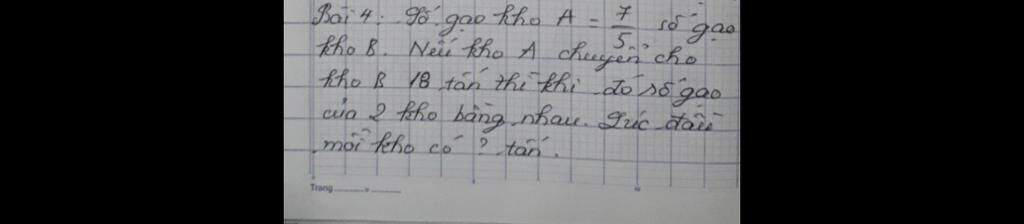 Bài 4: Số gạo kho A = 7/5 số gạo
kho B. Nếu kho A chuyển cho
kho B 18 tấn thì khi đó số gạo
của 2 kho bằng nhau. Lúc đầu
mỗi kho có ? tấn.
Trang